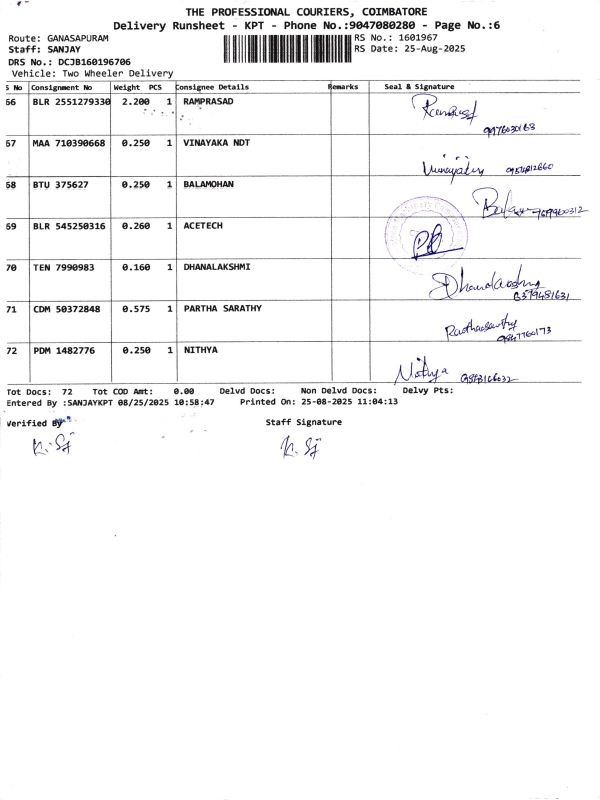 THE PROFESSIONAL COURIERS, COIMBATORE
Delivery Runsheet - KPT - Phone No.:9047080280 - Page No.:6
Route: GANASAPURAM RS No.: 1601967
Staff: SANJAY RS Date: 25-Aug-2025
DRS No.: DCJB160196706
Vehicle: Two Wheeler Delivery
S No Consignment No Weight PCS Consignee Details Remarks Seal & Signature
66 BLR 2551279330 2.200 1 RAMPRASAD
67 MAA 710390668 0.250 1 VINAYAKA NDT
68 BTU 375627 0.250 1 BALAMOHAN
69 BLR 545250316 0.260 1 ACETECH
70 TEN 7990983 0.160 1 DHANALAKSHMI
71 CDM 50372848 0.575 1 PARTHA SARATHY
72 PDM 1482776 0.250 1 NITHYA
Nithya
Tot Docs: 72 Tot COD Amt: 0.00 Delvd Docs: Non Delvd Docs: Delvy Pts:
Entered By :SANJAYKPT 08/25/2025 10:58:47 Printed On: 25-08-2025 11:04:13
Verified By Staff Signature